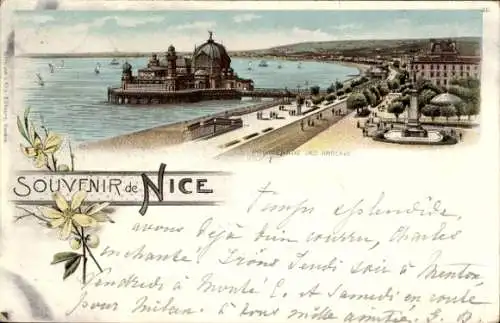 PROMENADE DES ANGLAIS
SOUVENIR de NICE
Temps splendide,
avons déjà bien couru, Charles
enchanté. Irons Jeudi soir à Menton
Vendredi à Monte C. et Samedi en route
pour Milan. à tous mille amitiés. G. B.